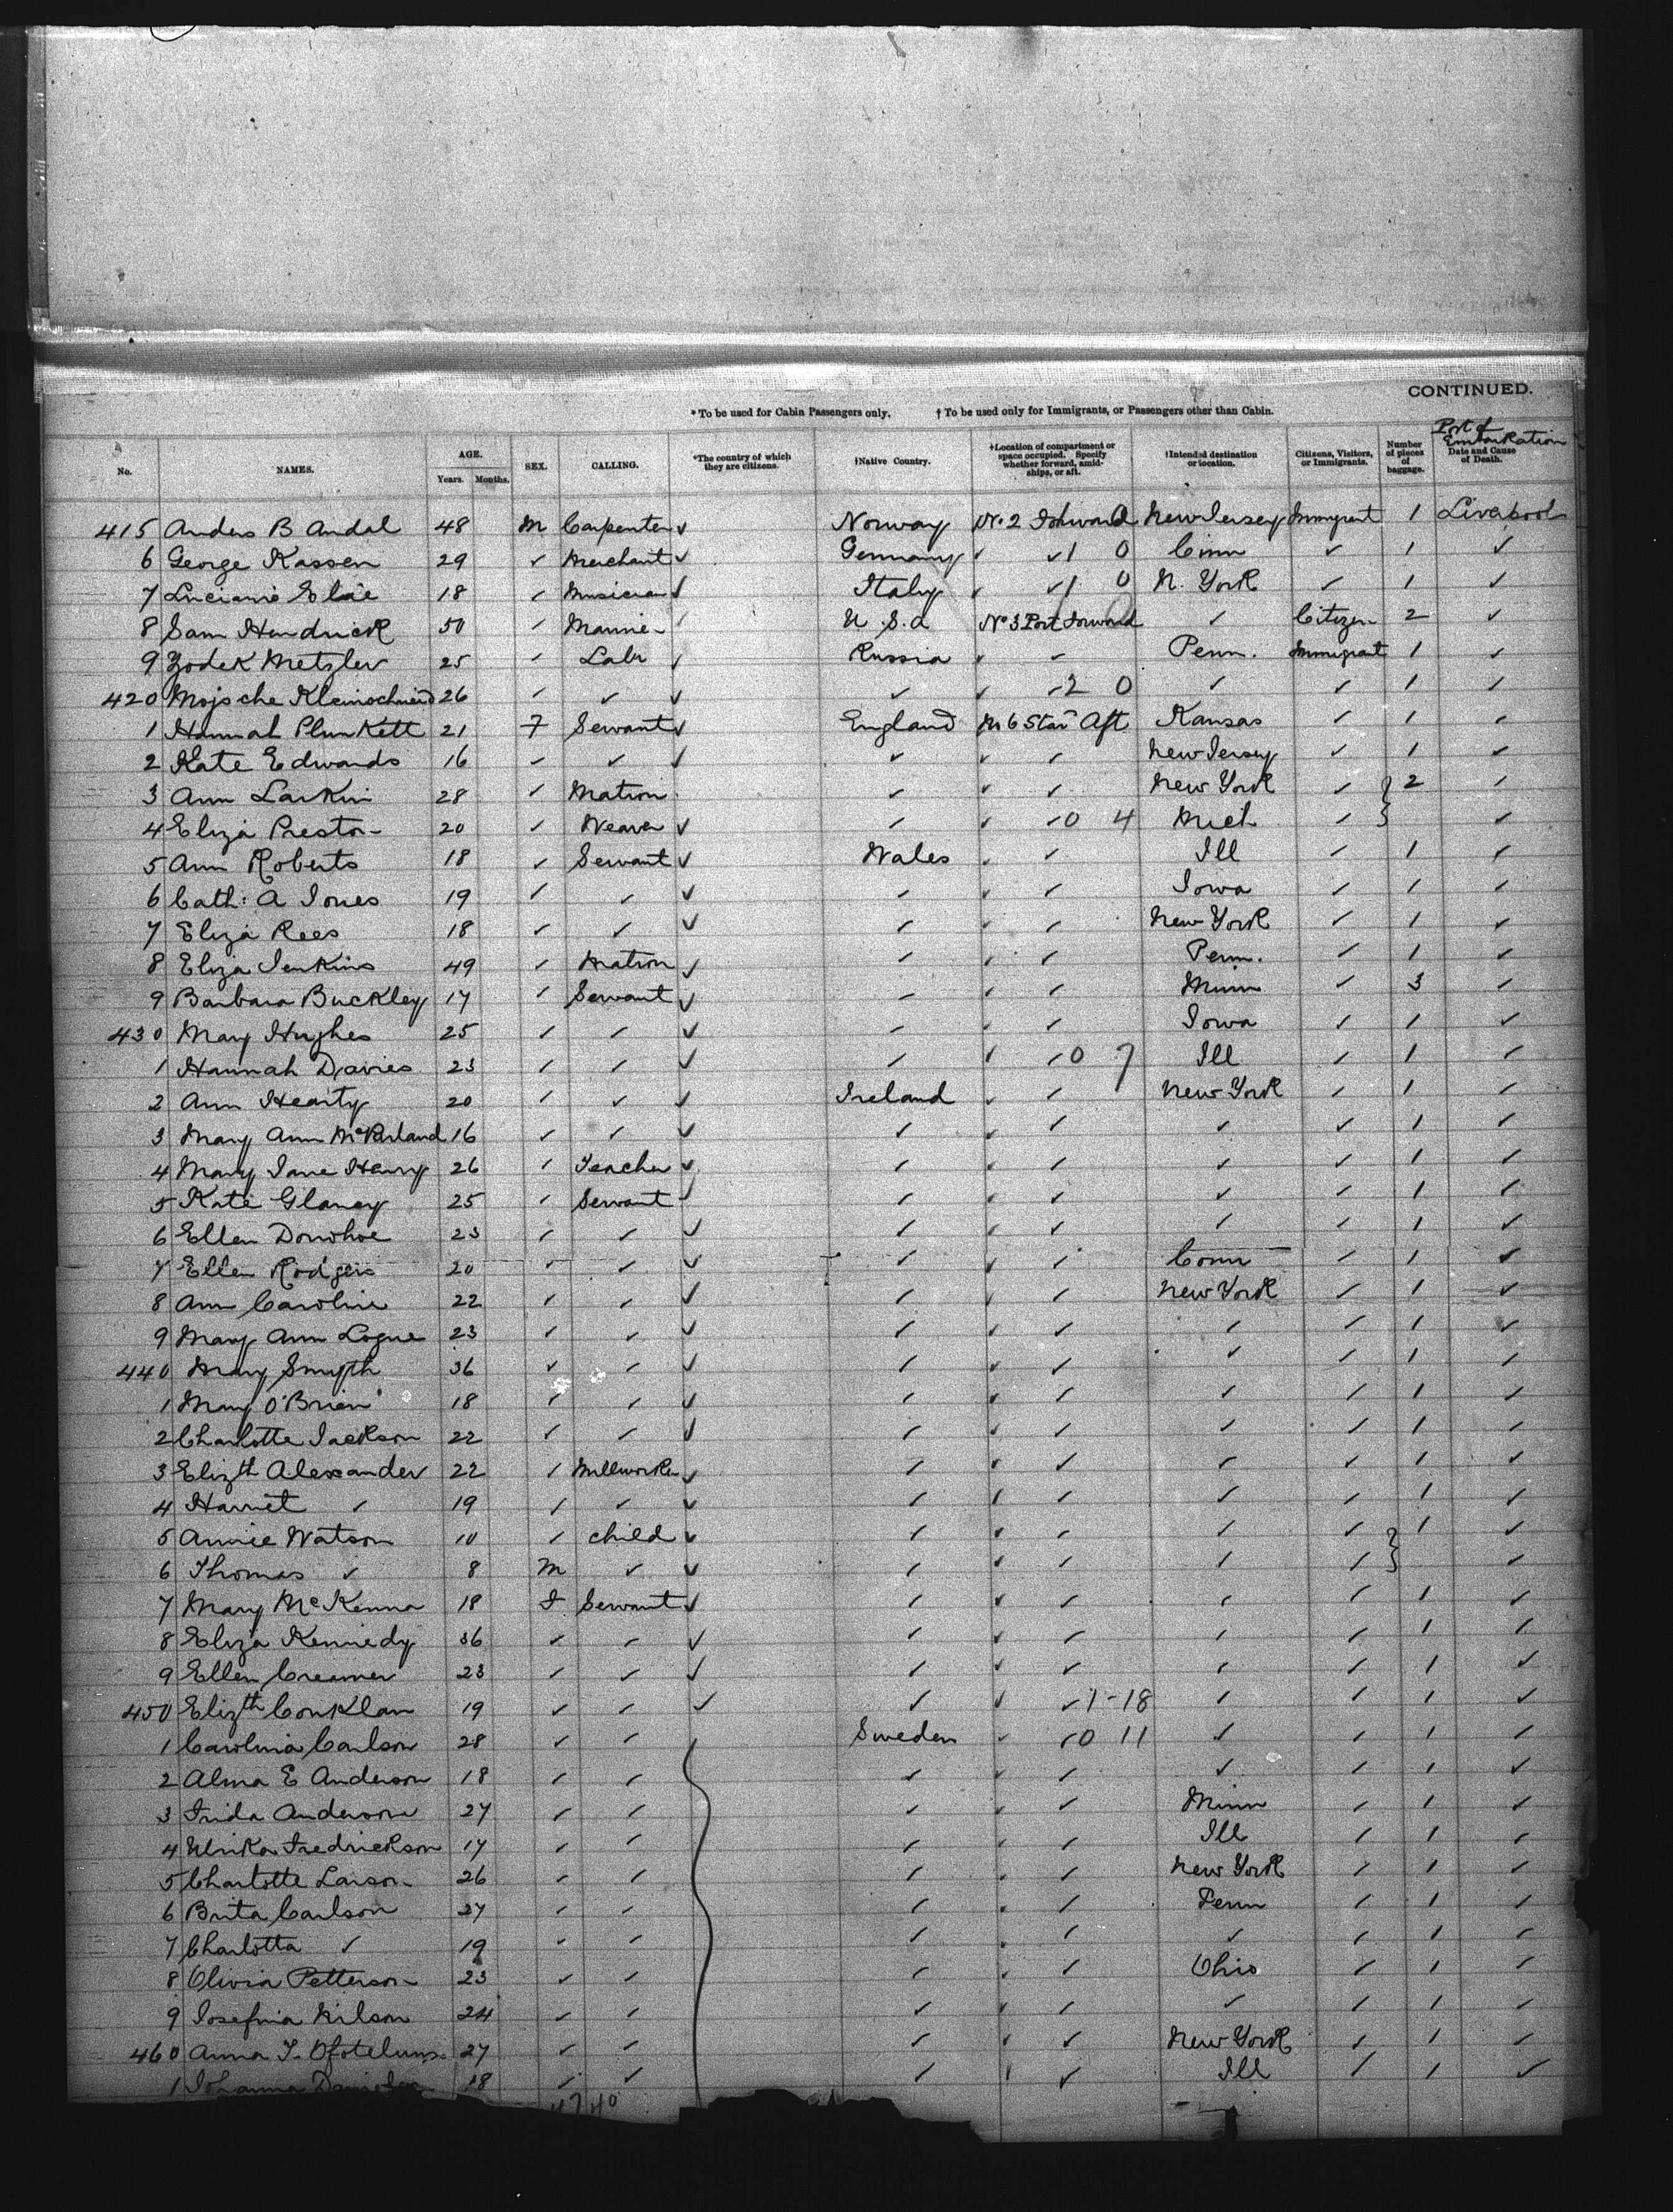 CONTINUED.
* To be used for Cabin Passengers only. † To be used only for Immigrants, or Passengers other than Cabin.
No. NAMES. AGE. Years. Months. SEX. CALLING. *The country of which they are citizens. †Native Country. †Location of compartment or space occupied. Specify whether forward, amidships, or aft. †Intended destination or location. Citizens, Visitors, or Immigrants. Number of pieces of baggage. Port of Embarkation Date and Cause of Death.
415 Anders B Andal 48 M Carpenter ✓ Norway No 2 Forward New Jersey Immigrant 1 Liverpool
6 George Kassen 29 ✓ Merchant ✓ Germany ✓ ✓ 1 0 ✓ 1 ✓
7 18 ✓ Musician ✓ Italy ✓ ✓ 1 0 N. York ✓ 1 ✓
8 Sam Hendrick 50 ✓ ✓ U S. a No 3 Port Forward ✓ Citizen 2 ✓
9 Zodek Metzler 25 ✓ Labr ✓ Russia ✓ ✓ Penn. Immigrant 1 ✓
420 Mojsche 26 ✓ ✓ ✓ ✓ ✓ ✓ 2 0 ✓ ✓ 1 ✓
1 Hannah Plunkett 21 F Servant ✓ England No 6 Star Aft Kansas ✓ 1 ✓
2 Kate Edwards 16 ✓ ✓ ✓ ✓ ✓ ✓ New Jersey ✓ 1 ✓
3 Ann Larkin 28 ✓ Matron ✓ ✓ ✓ New York ✓ } 2 ✓
4 Eliza Preston 20 ✓ Weaver ✓ ✓ ✓ ✓ 0 4 Mich ✓ } ✓
5 Ann Roberts 18 ✓ Servant ✓ Wales ✓ ✓ Ill ✓ 1 ✓
6 Cath: A Jones 19 ✓ ✓ ✓ ✓ ✓ ✓ Iowa ✓ 1 ✓
7 Eliza Rees 18 ✓ ✓ ✓ ✓ ✓ ✓ New York ✓ 1 ✓
8 Eliza Jenkins 49 ✓ Matron ✓ ✓ ✓ ✓ Penn. ✓ 1 ✓
9 Barbara Buckley 17 ✓ Servant ✓ ✓ ✓ ✓ Minn ✓ 3 ✓
430 Mary Hughes 25 ✓ ✓ ✓ ✓ ✓ ✓ Iowa ✓ 1 ✓
1 Hannah Davies 23 ✓ ✓ ✓ ✓ ✓ ✓ 0 7 Ill ✓ 1 ✓
2 Ann Hearty 20 ✓ ✓ ✓ Ireland ✓ ✓ New York ✓ 1 ✓
3 Mary Ann McParland 16 ✓ ✓ ✓ ✓ ✓ ✓ ✓ ✓ 1 ✓
4 Mary Jane Henry 26 ✓ Teacher ✓ ✓ ✓ ✓ ✓ ✓ 1 ✓
5 Kate Glancy 25 ✓ Servant ✓ ✓ ✓ ✓ ✓ ✓ 1 ✓
6 Ellen Donohoe 23 ✓ ✓ ✓ ✓ ✓ ✓ ✓ ✓ 1 ✓
7 Ellen Rodgers 20 ✓ ✓ ✓ ✓ ✓ ✓ Conn ✓ 1 ✓
8 Ann Caroline 22 ✓ ✓ ✓ ✓ ✓ ✓ New York ✓ 1 ✓
9 Mary Ann Logue 23 ✓ ✓ ✓ ✓ ✓ ✓ ✓ ✓ 1 ✓
440 Mary Smyth 36 ✓ ✓ ✓ ✓ ✓ ✓ ✓ ✓ 1 ✓
1 Mary O'Brien 18 ✓ ✓ ✓ ✓ ✓ ✓ ✓ ✓ 1 ✓
2 Charlotte Jackson 22 ✓ ✓ ✓ ✓ ✓ ✓ ✓ ✓ 1 ✓
3 Elizth Alexander 22 ✓ Millworker ✓ ✓ ✓ ✓ ✓ ✓ 1 ✓
4 Harriet ✓ 19 ✓ ✓ ✓ ✓ ✓ ✓ ✓ ✓ 1 ✓
5 Annie Watson 10 ✓ child ✓ ✓ ✓ ✓ ✓ ✓ } 1 ✓
6 Thomas ✓ 8 M ✓ ✓ ✓ ✓ ✓ ✓ ✓ } ✓
7 Mary McKenna 18 F Servant ✓ ✓ ✓ ✓ ✓ ✓ 1 ✓
8 Eliza Kennedy 36 ✓ ✓ ✓ ✓ ✓ ✓ ✓ ✓ 1 ✓
9 Ellen Creamer 23 ✓ ✓ ✓ ✓ ✓ ✓ ✓ ✓ 1 ✓
450 Elizth Conklan 19 ✓ ✓ ✓ ✓ ✓ ✓ 1-18 ✓ ✓ 1 ✓
1 Carolina Carlson 28 ✓ ✓ Sweden ✓ ✓ 0 11 ✓ ✓ 1 ✓
2 Alma E Anderson 18 ✓ ✓ ✓ ✓ ✓ ✓ ✓ 1 ✓
3 Frida Anderson 27 ✓ ✓ ✓ ✓ ✓ Minn ✓ 1 ✓
4 Ulrika Fredrickson 17 ✓ ✓ ✓ ✓ ✓ Ill ✓ 1 ✓
5 Charlotte Larson 26 ✓ ✓ ✓ ✓ ✓ New York ✓ 1 ✓
6 Brita Carlson 27 ✓ ✓ ✓ ✓ ✓ Penn ✓ 1 ✓
7 Charlotta ✓ 19 ✓ ✓ ✓ ✓ ✓ ✓ ✓ 1 ✓
8 Olivia Petterson 23 ✓ ✓ ✓ ✓ ✓ Ohio ✓ 1 ✓
9 Josefina Nilson 24 ✓ ✓ ✓ ✓ ✓ ✓ ✓ 1 ✓
460 Anna 27 ✓ ✓ ✓ ✓ ✓ New York ✓ 1 ✓
1 Johanna 18 ✓ ✓ ✓ ✓ ✓ Ill ✓ 1 ✓